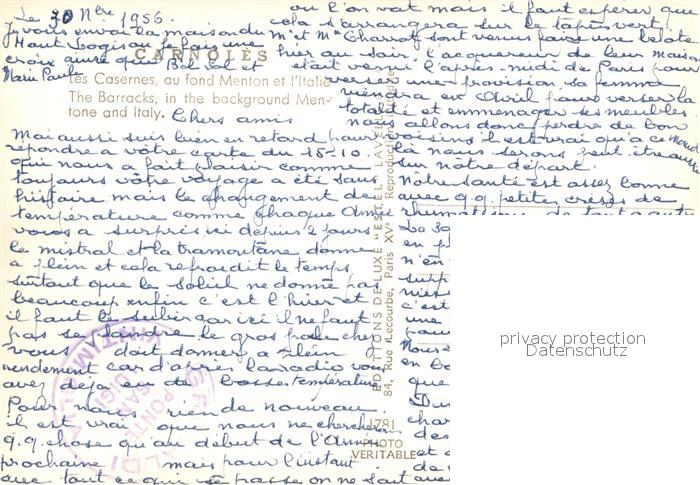 Le 30 Nbre 1956.
Je vous envoi la maison du
Haut Logis ou j'ai fais une
croix ainsi que Bel Sol et
Marie Paule
CARNOLÈS
Les Casernes, au fond Menton et l'Italie
The Barracks, in the background Men-
tone and Italy.
Chers amis
Moi aussi suis bien en retard pour
répondre a vôtre carte du 15-10.
qui nous a fait plaisir comme
toujours vôtre voyage a été sans
histoire mais le changement de
température comme chaque Année
vous a surpris ici depuis 2 jours
le mistral et la tramontane donne
a plein et cela refroidit le temps
surtout que le soleil ne donne pas
beaucoup enfin c'est l'hiver et
il faut le subir car ici il ne faut
pas se plaindre le gros poele chez
vous doit donner a plein
rendement car d'après la radio vous
avez déja eu de basse température
Pour nous rien de nouveau.
il est vrai que nous ne chercherons
q.q. chose qu'au début de l'Année
prochaine mais pour l'instant
avec tout ce qui se passe on ne sait
ou l'on vat mais il faut espérer que
cela s'arrangera sur le tapis vert.
Mr et Me Charrot sont venus faire une belote
hier au soir. l'acquereur de leur maison
était venu l'après-midi de Paris pour
verser une provision. sa femme
viendra en Avril pour verser la
totalité et emménager ses meubles.
nous allons donc perdre de bon
voisins. il est vrai qu'a ce moment
là nous serons peut être aussi
sur nôtre départ.
Nôtre santé est assez bonne
avec q.q. petites crises de
rhumatisme de
EDITIONS DE LUXE "ESTEL" LAVELLE
84, Rue Lecourbe, Paris XV° Reproduction interdite
1781
PHOTO
VERITABLE
privacy protection
Datenschutz